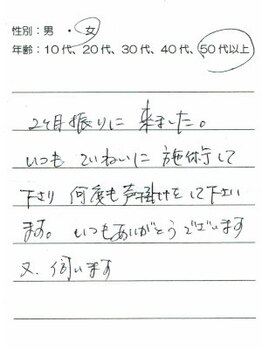 性別：男 ・ 女
年齢：10代、20代、30代、40代、50代以上
2ヶ月振りに 来ました。
いつも ていねいに 施術して
下さり 何度も声掛けをして下さい
ます。いつもありがとうございます
又、伺います